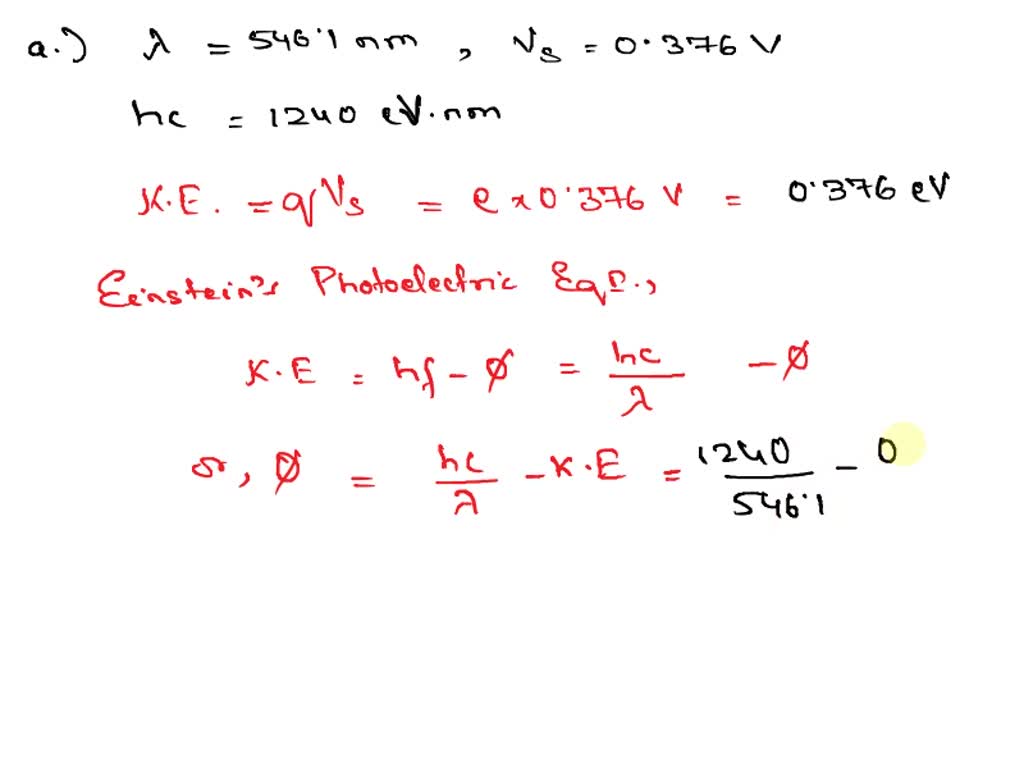 a.) λ = 546.1 nm , Vs = 0.376 V
hc = 1240 eV.nm
K.E. = qVs = e x 0.376 V = 0.376 eV
Einstein's Photoelectric Eqn.,
K.E = hf - ϕ = hc/λ - ϕ
or, ϕ = hc/λ - K.E = 1240/546.1 - 0